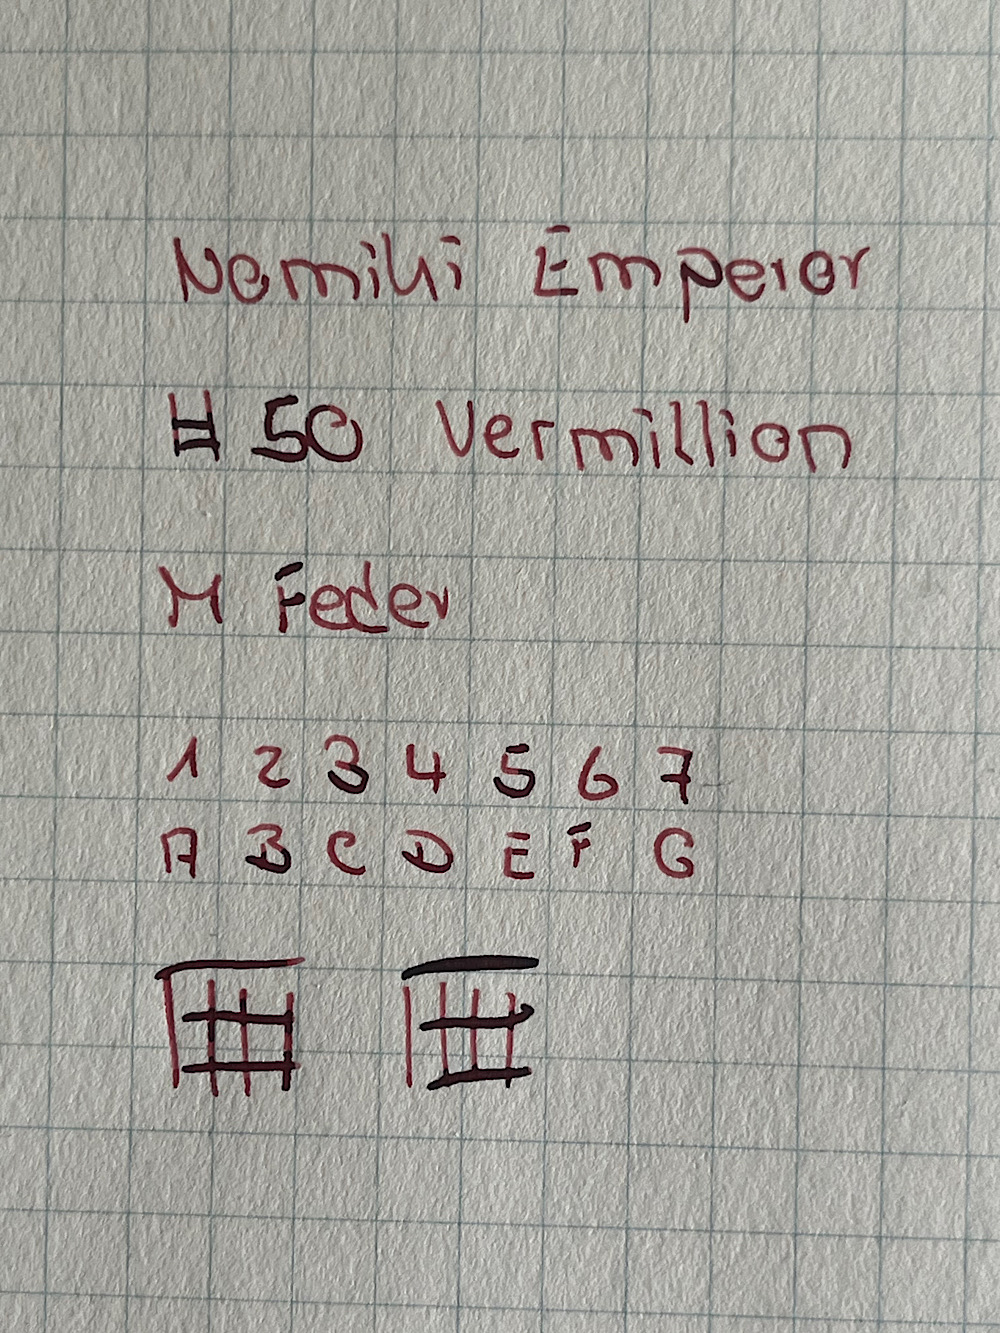 Namiki Emperor
# 50 Vermillion
M Feder
1 2 3 4 5 6 7
A B C D E F G